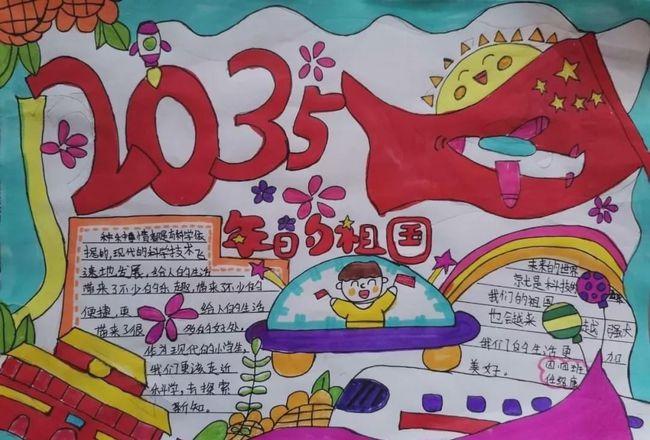 2035
年日的祖国
种种事情都是有科学依
据的,现代的科学技术飞
速地发展,给人们的生活
带来了不少的乐趣,带来了不少的
便捷,更 给人们的生活
带来了很 多的好处,
作为现代的小学生,
我们更该走近
科学,去探索
新知。
未来的世界
我们的祖国
也会越来 越 强大
我们的生活更 加
美好。